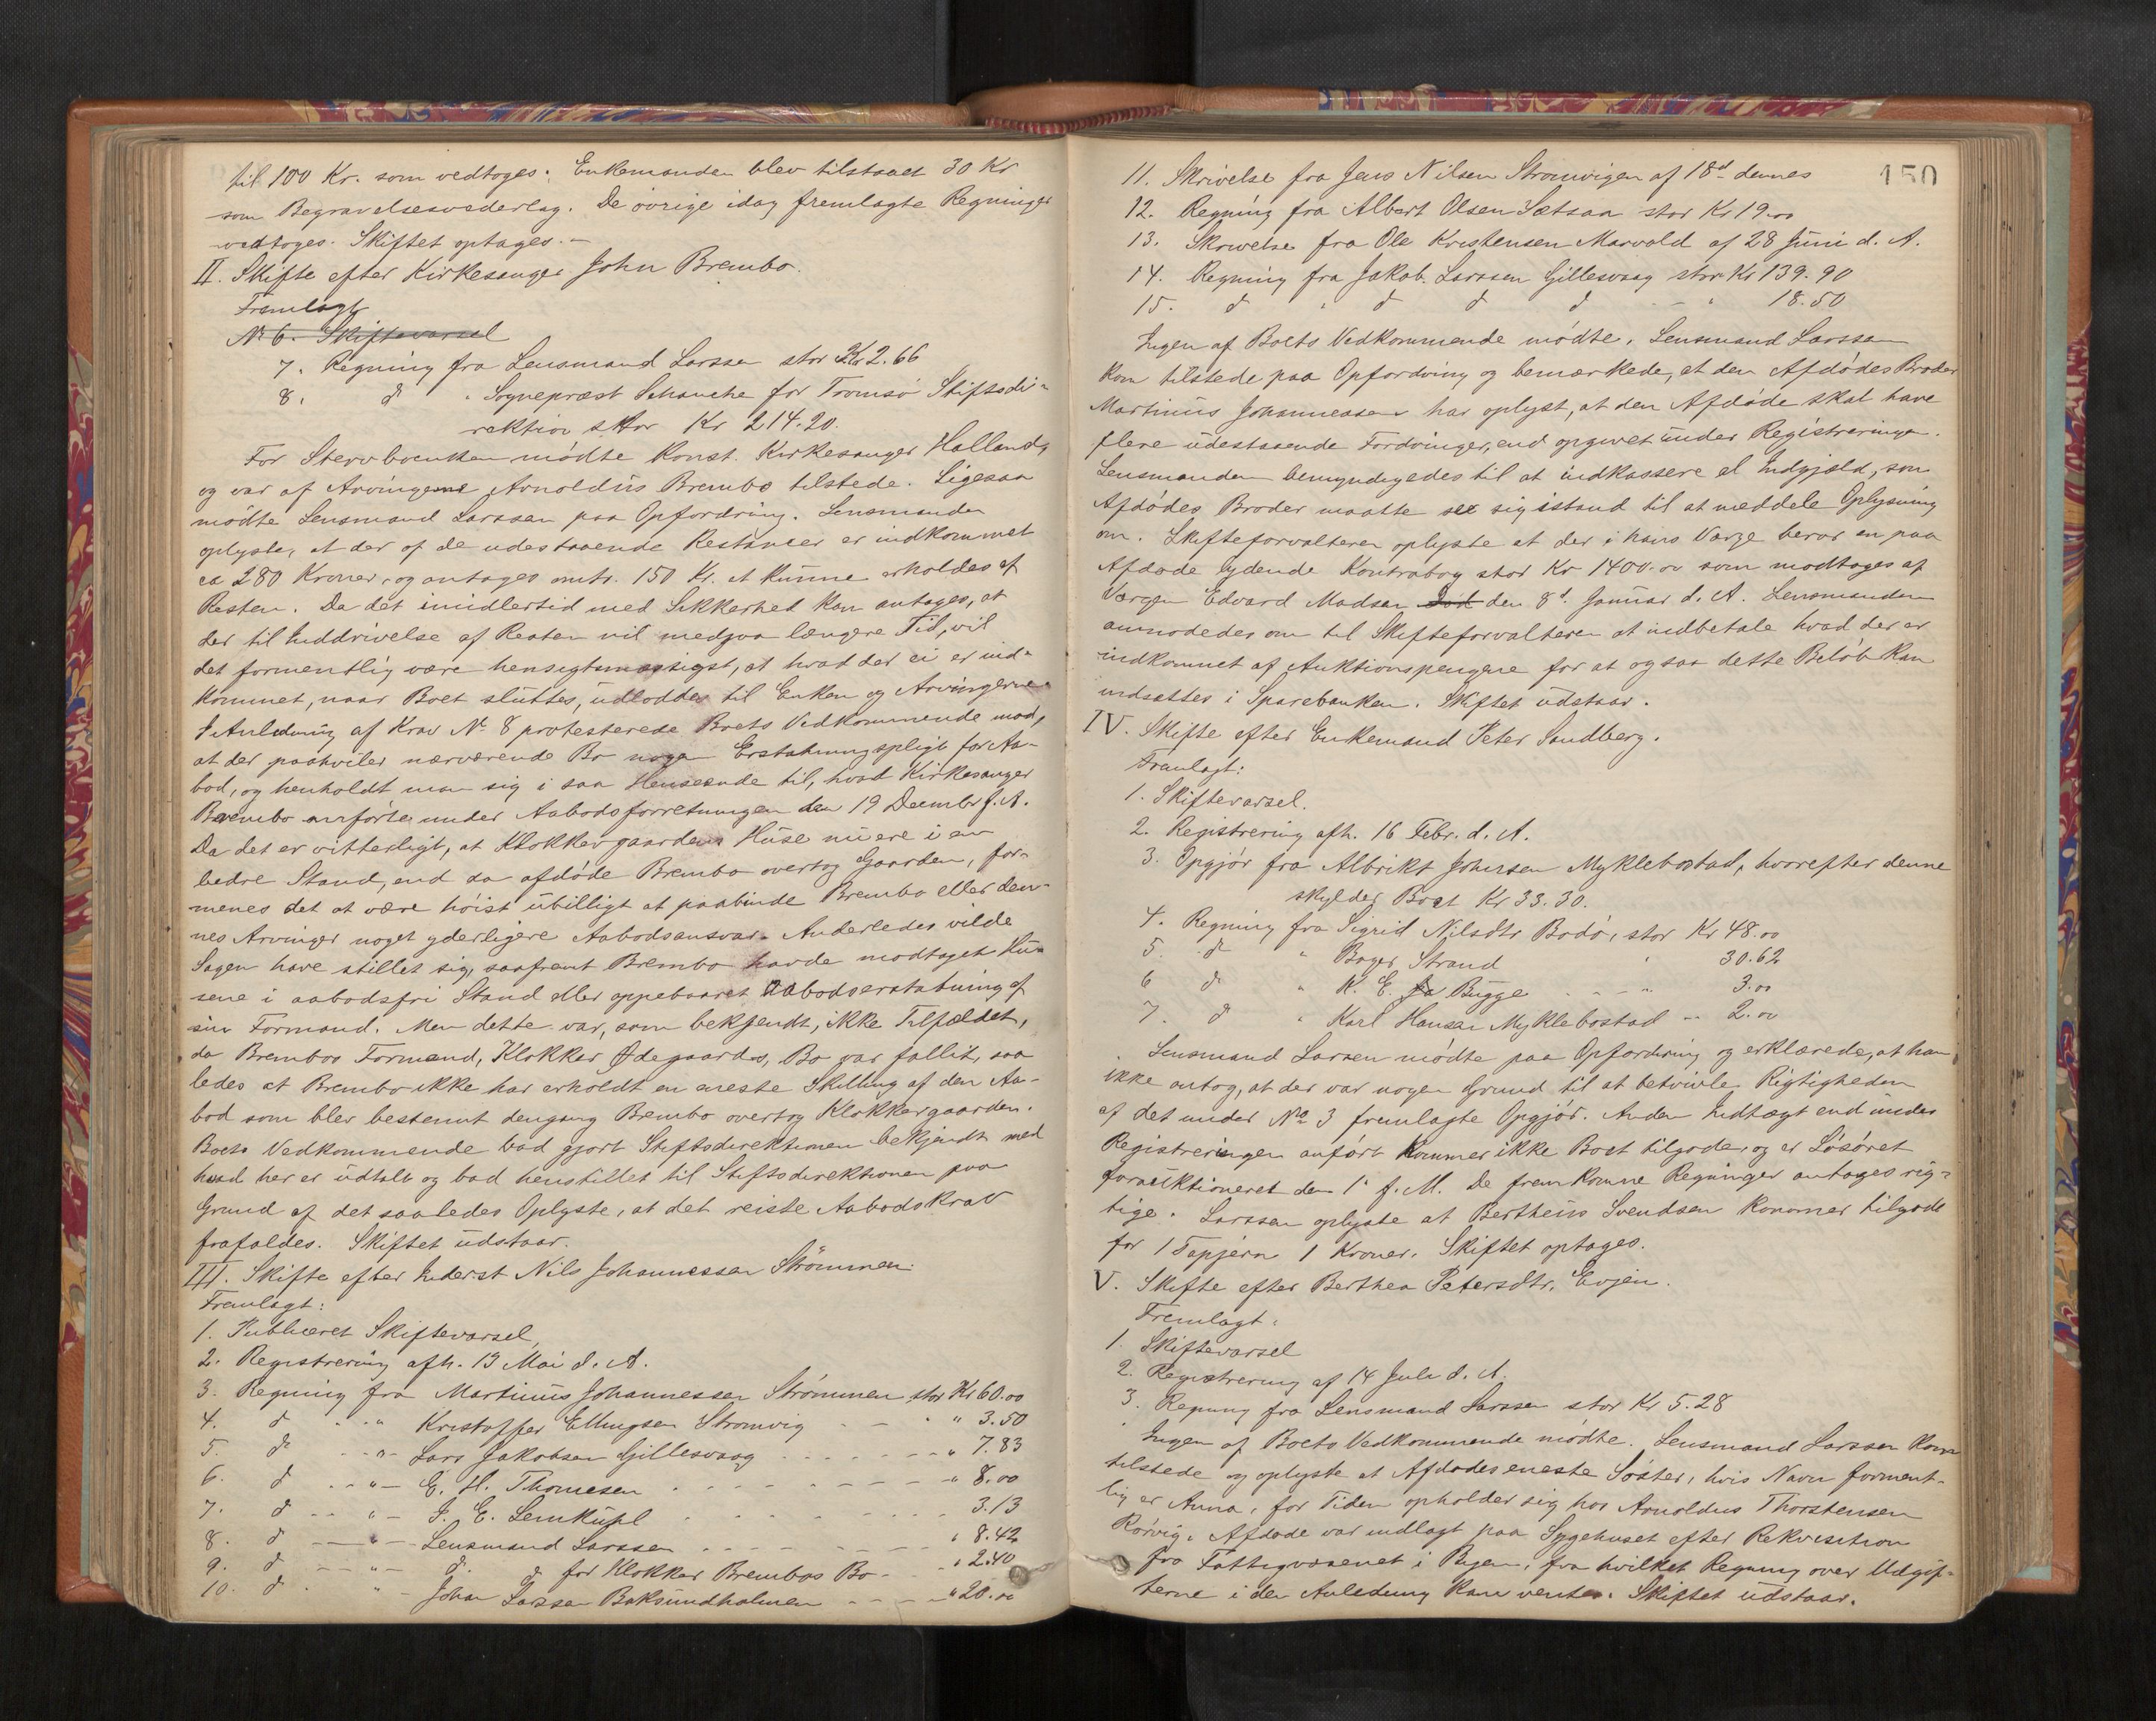 til 100 Kr. som vedtoges. Enkemanden blev tilstaaet 30 Kr
som Begravelsesvederlag. De övrige idag fremlagte Regninger
vedtoges. Skiftet optages.-
II. Skifte efter Kirkesanger John Brembo.
Fremlagt
No 6. Skiftevarsel
7. Regning fra Lensmand Larssen stor Kr 2.66
8. d Sognepræst Schanche for Tromsö Stiftsdi-
rektion stor Kr 214.20.
For Stervboenken mödte Konst. Kirkesanger Halland,
og var af Arvingerne Arnoldus Brembo tilstede. Ligesaa
mödte Lensmand Larssen paa Opfordring. Lensmanden
oplyste, at der af de udestaaende Restancer er indkommet
ca 280 Kroner, og antages omtr. 150 Kr. at kunne erholdes af
Resten. Da det imidlertid med Sikkerhed kan antages, at
der til Inddrivelse af Resten vil medgaa længere Tid, vil
det formentlig være hensigtsmæssigst, at hvad der ei er ind-
kommet, naar Boet sluttes, udloddes til Enken og Arvingerne.
I Anledning af Krav No 8 protesterede Boets Vedkommende mod,
at der paahviler nærværende Bo nogen Erstatningspligt for Aa-
bod, og henholdt man sig i saa Henseende til, hvad Kirkesanger
Brembo anförte under Aabodsforretningen den 19 Decembr f. A.
Da det er vitterligt, at Klokkergaardens Huse nu ere i en
bedre Stand, end da afdöde Brembo overtog Gaarden, for-
menes det at være höist ubilligt at paabinde Brembo eller den-
nes Arvinger noget yderligere Aabodsansvar. Anderledes vilde
Sagen have stillet sig, saafremt Brembo havde modtaget Hu-
sene i aabodsfri Stand eller oppebaaret Aabodserstatning af
sin Formand. Men dette var, som bekjendt, ikke Tilfældet,
da Brembos Formand, Klokker Ødegaards, Bo var fallit, saa
ledes at Brembo ikke har erholdt en eneste Skilling af den Aa-
bod som blev bestemt dengang Brembo overtog Klokkergaarden.
Boets Vedkommende bad gjort Stiftsdirektionen bekjendt med
hvad her er udtalt og bad henstillet til Stiftsdirektionen paa
Grund af det saaledes Oplyste, at det reiste Aabodskrav
frafaldes. Skiftet udstaar.
III. Skifte efter Inderst Nils Johannessen Strömmen.
Fremlagt:
1. Publiceret Skiftevarsel,
2. Registrering afh. 13 Mai d. A.
3. Regning fra Martinus Johannessen Strömmen stor Kr 60.00
4. d " Kristoffer Ellingsen Stromvig " 3.50
5. d " Lars Jakobsen Gillesvaag " 7.83
6. d " E. H. Thomesen " 8.00
7. d " J. E. Lemkühl 3.13
8. d " Lensmand Larssen " 8.42
9. d " d d for Klokker Brembos Bo " 2.40
10. d " Johan Larssen Baksundholmen " 20.00
150
11. Skrivelse fra Jens Nilsen Stromvigen af 18d dennes
12. Regning fra Albert Olsen Sætsaa stor Kr 19.00
13. Skrivelse fra Ole Kristensen Marvold af 28 Juni d. A.
14. Regning fra Jakob Larssen Gillesvaag stor Kr 139.90
15. d " d d d " 18.50
Ingen af Boets Vedkommende mödte. Lensmand Larssen
kom tilstede paa Opfordring og bemærkede, at den Afdödes Broder
Martinus Johannessen har oplyst, at den Afdöde skal have
flere udestaaende Fordringer, end opgivet under Registreringen.
Lensmanden bemyndigedes til at indkassere al Indgjæld, som
Afdödes Broder maatte see sig istand til at meddele Oplysning
om. Skifteforvalteren oplyste at der i hans Værge beror en paa
Afdøde lydende Kontrabog stor Kr 1400.00 som modtoges af
Værgen Edvard Madsen den 8d. Januar d. A. Lensmanden
anmodedes om til Skifteforvalteren at indbetale hvad der er
indkommet af Auktionspengene for at ogsaa dette Belöb kan
indsættes i Sparebanken. Skiftet udstaar.
IV. Skifte efter Enkemand Peter Sandberg.
Fremlagt:
1. Skiftevarsel.
2. Registrering afh. 16 Febr. d. A.
3. Opgjör fra Albrikt Johnsen Myklebostad, hvorefter denne
skylder Boet Kr 33.30.
4. Regning fra Sigrid Nilsdtr Bodö, stor Kr 48.00
5. d " Bager Strand " 30.62
6 d " K. E. Bugge " 3.00
7. d " Karl Hansen Myklebostad " 2.00
Lensmand Larsen mödte paa Opfordring og erklærede, at han
ikke antog, at der var nogen Grund til at betvivle Rigtigheden
af det under No 3 fremlagte Opgjör. Anden Indtægt end under
Registreringen anfört kommer ikke Boet tilgode, og er Lösöret
forauktioneret den 1' f. M. De fremkomne Regninger antages rig-
tige. Larssen oplyste at Bertheus Svendsen kommer tilgode
for 1 Tapjern 1 Kroner. Skiftet optages.
V. Skifte efter Berthea Petersdtr. Evjen.
Fremlagt:
1. Skiftevarsel
2. Registrering af 14 Juli d. A.
3. Regning fra Lensmand Larssen stor Kr 5.28
Ingen af Boets Vedkommende mödte. Lensmand Larssen kom
tilstede og oplyste at Afdødes eneste Söster, hvis Navn forment-
lig er Anna, for Tiden opholder sig hos Arnoldus Thorstensen
Rörvig. Afdøde var indlagt paa Sygehuset efter Rekvisition
fra Fattigvæsenet i Byen, fra hvilket Regning over Udgif-
terne i den Anledning kan ventes. Skiftet udstaar.